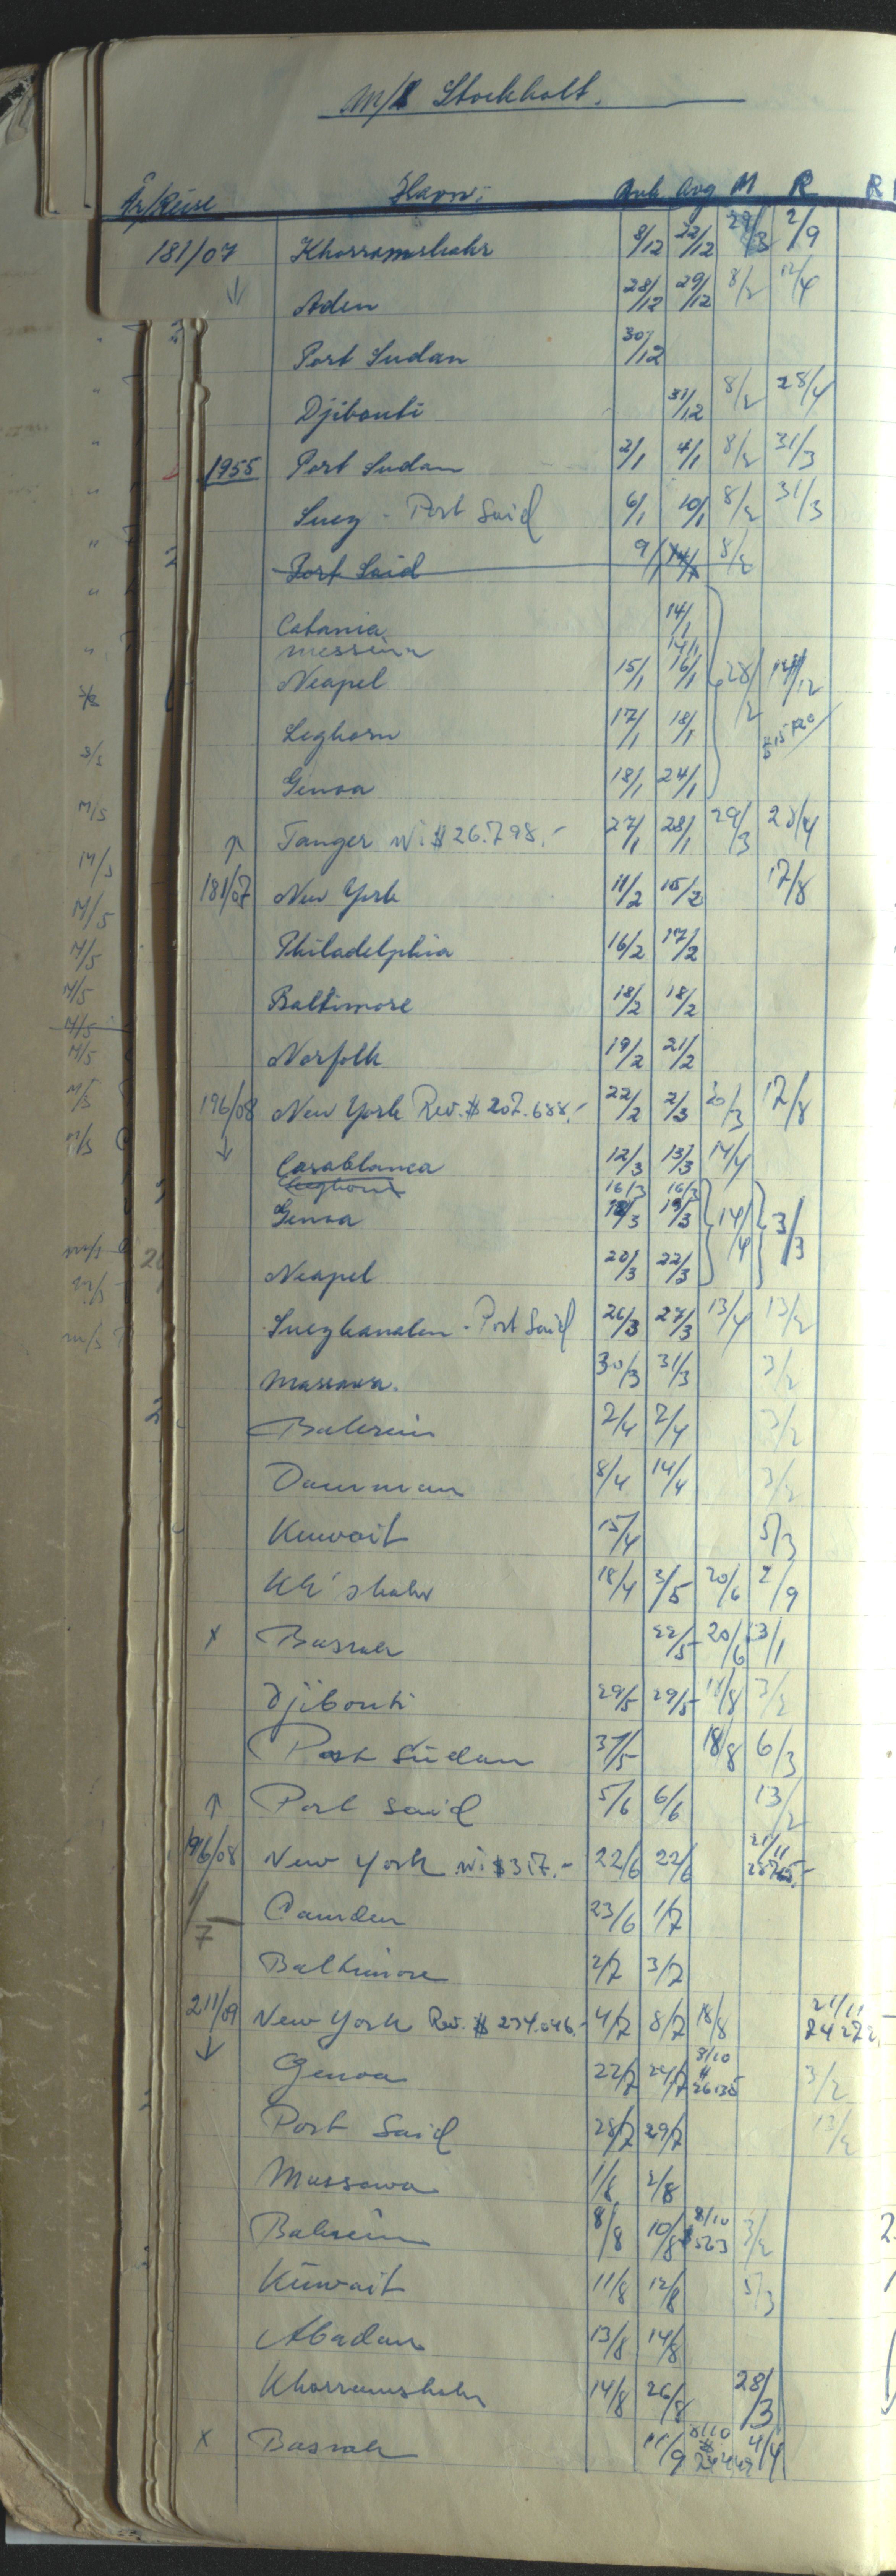 M/S Stockholt.
År/Reise Havn: Ank Avg M R R
181/07 Khorramshahr 8/12 22/12 29/3 2/9
↓ Aden 28/12 29/12 8/2 12/4
Port Sudan 30/12
Djibouti 31/12 8/2 28/4
1955 Port Sudan 2/1 4/1 8/2 31/3
Suez - Port Said 6/1 10/1 8/2 31/3
Port Said 9/1 8/2
Catania 14/1
Messina 14/1
Neapel 15/1 16/1 28/2
Leghorn 17/1 18/1
Genoa 18/1 24/1
↑ Tanger Wi $ 26.798.- 27/1 28/1 29/3 28/4
181/07 New York 11/2 15/2 17/8
Philadelphia 16/2 17/2
Baltimore 18/2 18/2
Norfolk 19/2 21/2
196/08 New York Rev. $ 207.688.- 22/2 2/3 30/3 17/8
↓ Casablanca 12/3 13/3 14/4
Leghorn 16/3 16/3
Genoa 18/3 19/3 14/4 3/3
Neapel 20/3 22/3
Suezkanalen - Port Said 26/3 27/3 13/4 13/2
Massawa. 30/3 31/3 3/2
Bahrein 2/4 7/4 3/2
Damman 8/4 14/4 3/2
Kuwait 15/4 5/3
Kh'shahr 18/4 3/5 20/6 2/9
x Basrah 22/5 20/6 13/1
Djibouti 29/5 29/5 18/8 3/2
Port Sudan 31/5 18/8 6/3
↑ Port Said 5/6 6/6 13/2
196/08 New York Wi $ 317.- 22/6 22/6 21/11 25765.-
1/7 Camden 23/6 1/7
Baltimore 2/7 3/7
211/09 New York Rev. $ 234.046.- 4/7 8/7 18/8 21/11 24272.
↓ Genoa 22/7 24/7 8/10 $ 26135 3/2
Port Said 28/7 29/7 13/2
Massawa 1/8 2/8
Bahrein 8/8 10/8 8/10 $ 563 3/2
Kuwait 11/8 12/8 5/3
Abadan 13/8 14/8
Khorramshahr 14/8 26/8 28/3
x Basrah 11/9 8/10 $ 24449 4/4